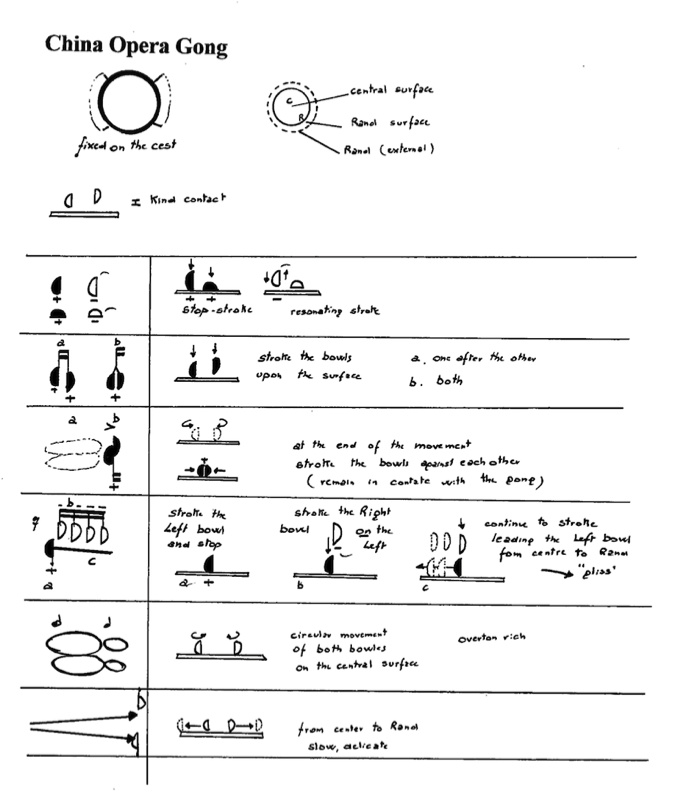 China Opera Gong
central surface
C
R
Rand surface
Rand (external)
fixed on the cest
= Kind contact
+ + + -
+ -
+ + -
stop-stroke
resonating stroke
a b
+ +
stroke the bowls
upon the surface
a. one after the other
b. both
a b
+
+
at the end of the movement
stroke the bowls against each other
(remain in contate with the gong)
b
c
+
a
stroke the
Left bowl
and stop
a +
stroke the Right
bowl on the
Left
b
continue to stroke
leading the Left bowl
fom centre to Rand
"gliss"
c
circular movement
of both bowles
on the central surface
overton rich
from center to Rand
slow, delicate